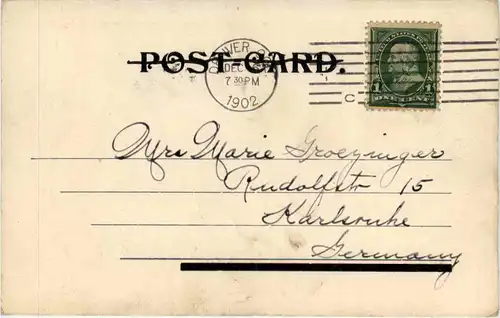 POST-CARD.
DENVER, C
DEC
7 30 PM
1902
C
1 1
ONE CENT
Mrs Marie Groezinger
Rudolfstr 15
Karlsruhe
Germany